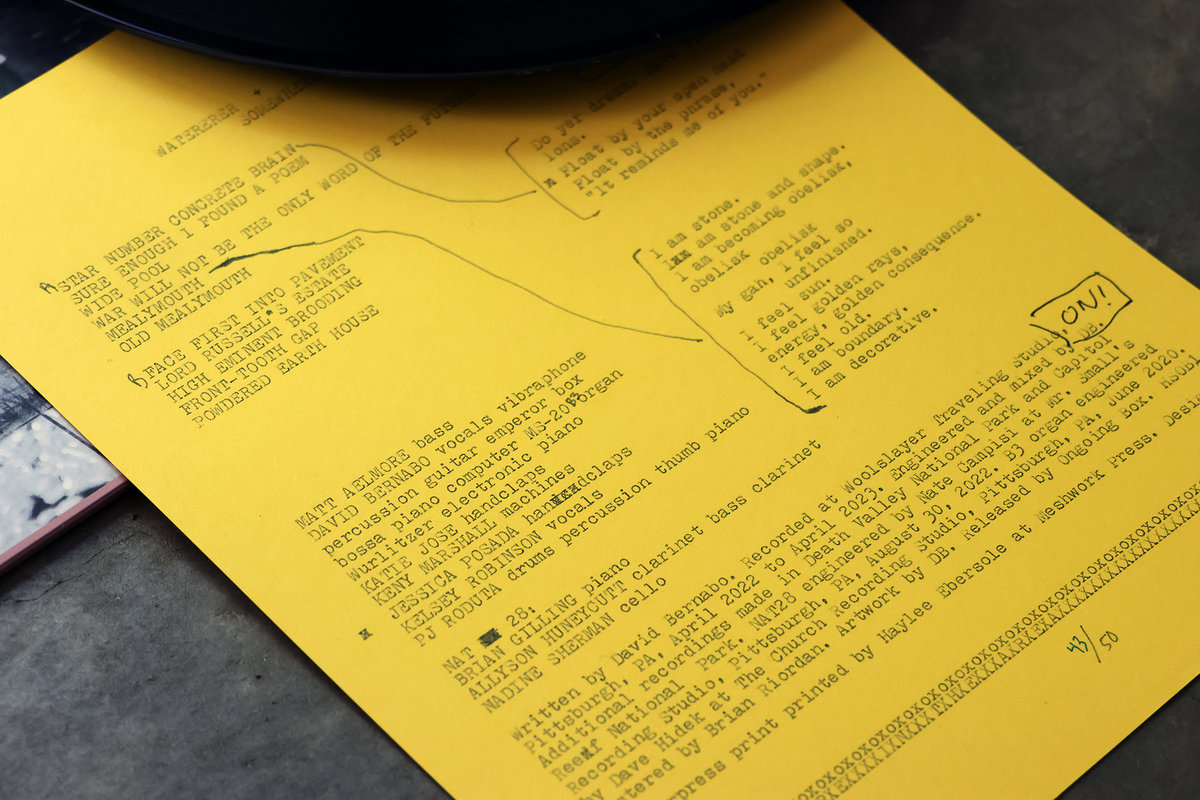 WATERERER +
SOMEWHERE
OF THE FUTURE
A STAR NUMBER CONCRETE BRAIN
SURE ENOUGH I FOUND A POEM
WIDE POOL
WAR WILL NOT BE THE ONLY WORD
MEALYMOUTH
OLD MEALYMOUTH
B FACE FIRST INTO PAVEMENT
LORD RUSSELL'S ESTATE
HIGH EMINENT BROODING
FRONT-TOOTH GAP
POWDERED EARTH HOUSE
Do yer
ions.
Float by your open head
Float by the phrase,
"It reminds me of you."
I am stone.
I am stone and shape.
I am becoming obelisk,
obelisk obelisk
My gah, I feel so
unfinished.
I feel sun.
I feel golden rays,
energy, golden consequence.
I feel old.
I am boundary.
I am decorative.
MATT AELMORE bass
DAVID BERNABO vocals vibraphone
percussion guitar emperor box
bossa piano computer MS-20 organ
Wurlitzer electronic piano
KATIE JOSE handclaps
KENY MARSHALL machines
JESSICA POSADA handclaps
KELSEY ROBINSON vocals
PJ RODUTA drums percussion thumb piano
NAT 28:
BRIAN GILLING piano
ALLYSON HUNEYCUTT clarinet bass clarinet
NADINE SHERMAN cello
ON!
Written by David Bernabo. Recorded at Woolslayer Traveling Studio,
Pittsburgh, PA, April 2022 to April 2023. Engineered and mixed by DB.
Additional recordings made in Death Valley National Park and Capitol
Reef National Park. NAT28 engineered by Nate Campisi at Mr. Small's
Recording Studio, Pittsburgh, PA, August 30, 2022. B3 organ engineered
by Dave Hidek at The Church Recording Studio, Pittsburgh, PA, June 2020.
stered by Brian Riordan. Artwork by DB. Released by Ongoing Box.
press print printed by Haylee Ebersole at Meshwork Press.
43/50